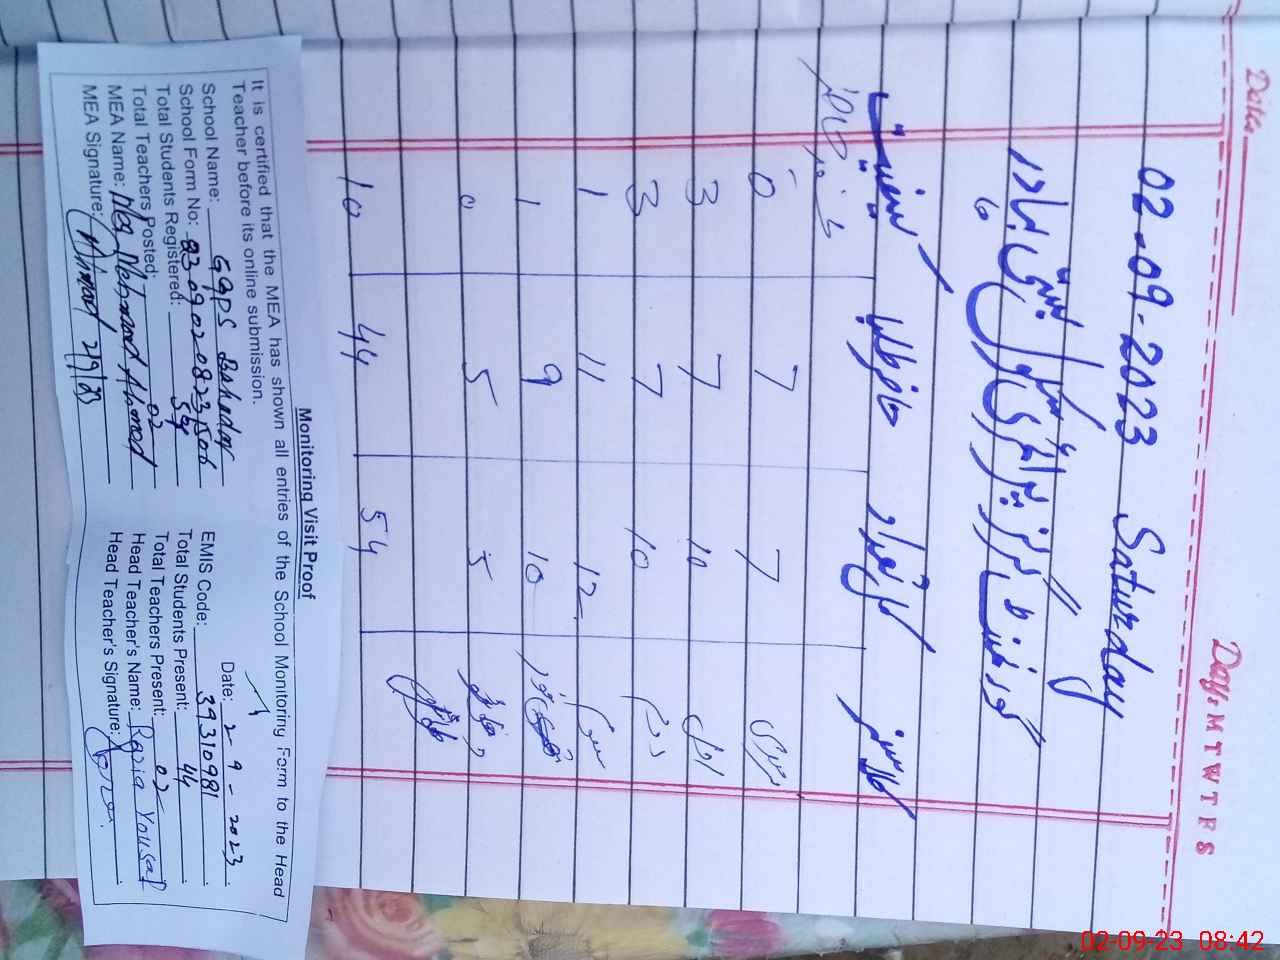 Date
Days M T W T F S
02-09-2023 Saturday
گورنمنٹ گرلز پرائمری سکول بستی بہادر
کلاسز کل تعداد حاضر طلبا
7 7 0
اول 10 7 3
دوم 10 7 3
سوم 12 11 1
10 9 1
5 5 0
54 44 10
Monitoring Visit Proof
It is certified that the MEA has shown all entries of the School Monitoring Form to the Head
Teacher before its online submission.
Date: 2-9-2023
School Name: GGPS Bahadar
EMIS Code: 39310981
School Form No:
Total Students Registered: 54
Total Students Present: 44
Total Teachers Posted: 02
Total Teachers Present: 02
MEA Name: Ahmad
Head Teacher's Name: Razia Yousaf
MEA Signature: Ahmad 2/9/23
Head Teacher's Signature:
02-09-23 08:42